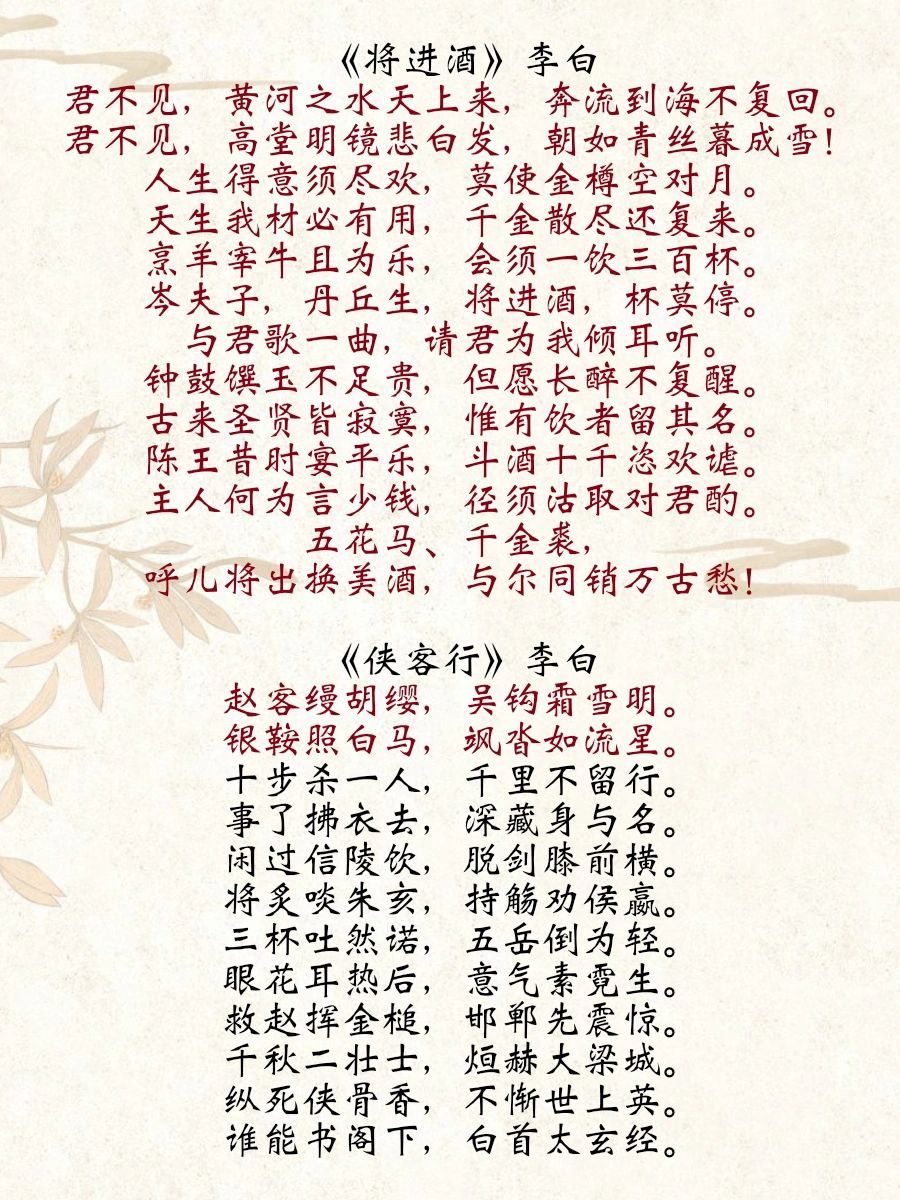 《将进酒》李白
君不见，黄河之水天上来，奔流到海不复回。
君不见，高堂明镜悲白发，朝如青丝暮成雪！
人生得意须尽欢，莫使金樽空对月。
天生我材必有用，千金散尽还复来。
烹羊宰牛且为乐，会须一饮三百杯。
岑夫子，丹丘生，将进酒，杯莫停。
与君歌一曲，请君为我倾耳听。
钟鼓馔玉不足贵，但愿长醉不复醒。
古来圣贤皆寂寞，惟有饮者留其名。
陈王昔时宴平乐，斗酒十千恣欢谑。
主人何为言少钱，径须沽取对君酌。
五花马、千金裘，
呼儿将出换美酒，与尔同销万古愁！
《侠客行》李白
赵客缦胡缨，吴钩霜雪明。
银鞍照白马，飒沓如流星。
十步杀一人，千里不留行。
事了拂衣去，深藏身与名。
闲过信陵饮，脱剑膝前横。
将炙啖朱亥，持觞劝侯嬴。
三杯吐然诺，五岳倒为轻。
眼花耳热后，意气素霓生。
救赵挥金槌，邯郸先震惊。
千秋二壮士，烜赫大梁城。
纵死侠骨香，不惭世上英。
谁能书阁下，白首太玄经。